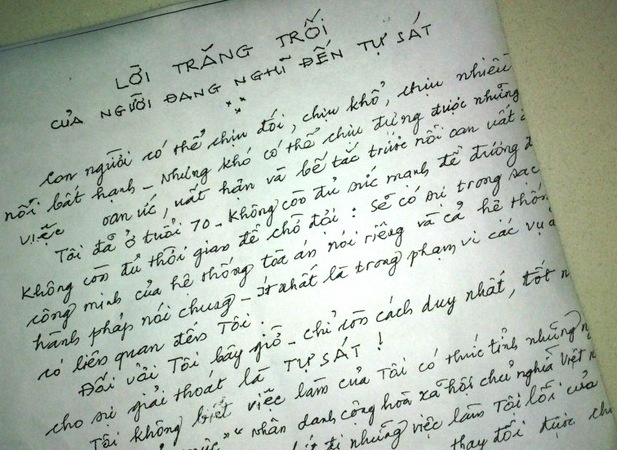 LỜI TRĂNG TRỐI
CỦA NGƯỜI ĐANG NGHĨ ĐẾN TỰ SÁT
Con người có thể chịu đói, chịu khổ, chịu nhiều
nỗi bất hạnh - Nhưng khó có thể chịu đựng được những
việc oan ức, uất hận và bế tắc trước nỗi oan uất
Tôi đã ở tuổi 70 - Không còn đủ sức mạnh để đương
Không còn đủ thời gian để chờ đợi : Sẽ có sự trong sạch
công minh của hệ thống tòa án nói riêng và cả hệ thống
hành pháp nói chung - ít nhất là trong phạm vi các vụ á
có liên quan đến Tôi :
Đối với Tôi bây giờ - chỉ còn cách duy nhất, tốt n
cho sự giải thoát là TỰ SÁT !
Tôi không biết việc làm của Tôi có thức tỉnh những n
nhân danh cộng hoà xã hội chủ nghĩa Việt n
đi những việc làm Tội lỗi của
thay đổi được ch